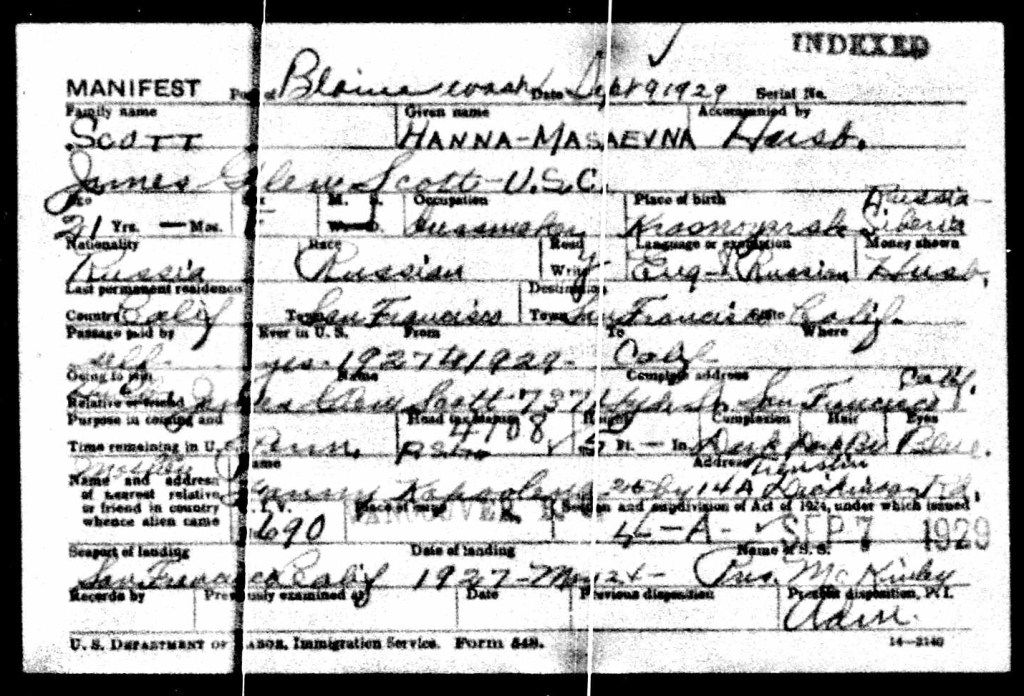 INDEXED
MANIFEST Port of Blaine Wash Date Sept 9 1929 Serial No.
Family name Given name Accompanied by
SCOTT HANNA-MASAEVNA Husb.
James Glenn Scott - U.S.C.
Age Sex M. S. Occupation Place of birth Russia-
21 Yrs. — Mos. F W. D. Krasnoyarsk Siberia
Nationality Race Read Language or exemption Money shown
Russia Russian Write Eng - Russian Husb,
Last permanent residence Destination
Country Calif Town San Francisco Town San Francisco State Calif.
Passage paid by Ever in U.S. From To Where
self- yes-1927 to 1929- Calif
Going to join Name Complete address Calif.
Relative or friend James Glenn Scott-737 San Francisco
Purpose in coming and Head tax Height Complexion Hair Eyes
Time remaining in U.S. Perm. 4108 5 Ft. — In. Dark Blue.
Mother
Name and address Name Address Tientsin
of nearest relative Fanny 26 by 14A Dickinson Rd,
or friend in country I.V. Place of issue Section and subdivision of Act of 1924, under which issued
whence alien came 690 VANCOUVER, B.C. 4-A- SEP 7 1929
Seaport of landing Date of landing Name of S.S.
San Francisco Calif 1927-May 24- Pres. McKinley
Records by Previously examined at Date Previous disposition Present disposition, P. I.
Adm.
U. S. DEPARTMENT OF LABOR, Immigration Service. Form 548. 14—2140